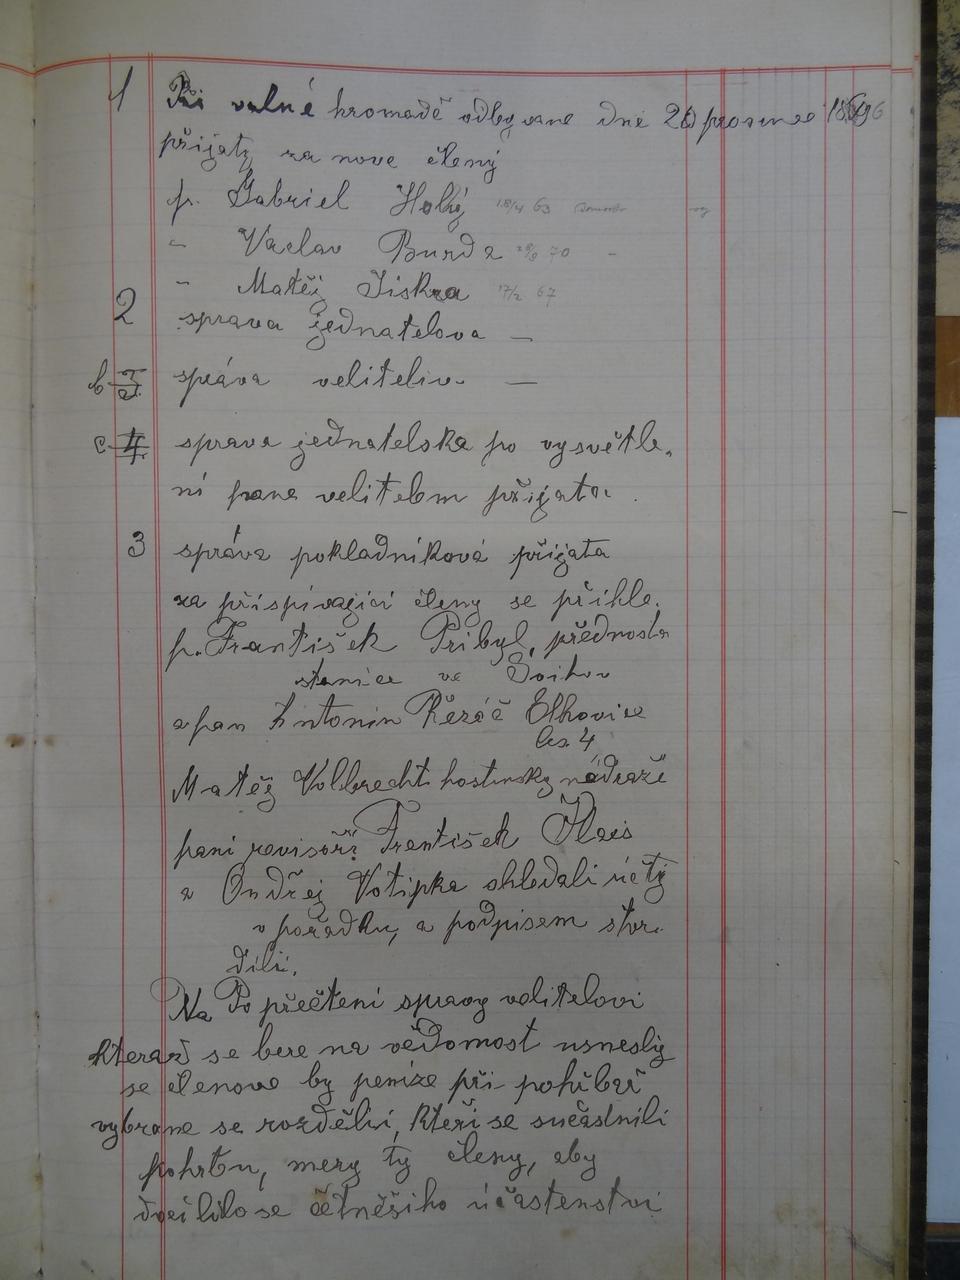 1 Při valné hromadě odbyvane dne 26 prosince 1896
přijaty za nove členy
p. Gabriel Holý 18/4 63
" Vaclav Burda 28/9 70 -
" Matěj Jiskra 17/2 67
2 sprava jednatelova —
b 3 správa veliteliv. —
c 4 sprava jednatelska po vysvětle,
ni pana velitelem přijata .
3 správa pokladníková přijata
za přispivajici členy se přihla.
p. František Pribyl, přednosta
stanice ve Švihov
a pan Antonin Řezáč
čís. 4
Matěj Vollbrecht hostinsky nádraží
pani revisoři František
a Ondřej Votipka shledali účty
v pořadku, a podpisem stvr.
dili.
Na Po přečteni spravy velitelovi
kteraž se bere na vědomost usnesly
se členove by penize při pohřbař
vybrane se rozdělili, kteři se sučastnili
pohrbu, mezy ty členy, aby
docililo se četněšiho účastenstvi